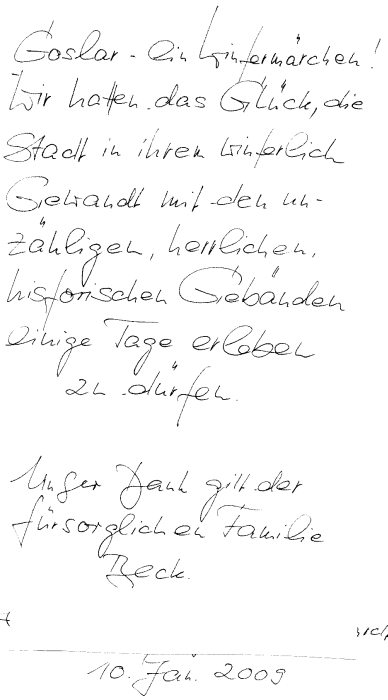 Goslar - ein Wintermärchen!
Wir hatten das Glück, die
Stadt in ihren winterlich
Gewandt mit den un-
zähligen, herrlichen,
historischen Gebäuden
einige Tage erleben
zu dürfen.
Unser Dank gilt der
fürsorglichen Familie
Beck.
10. Jan. 2009